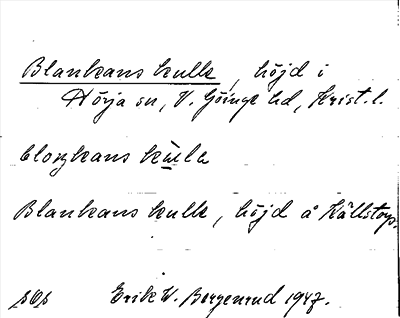 Blankans kulle, höjd i
Hörja sn, V. Göinge hd, Krist. l.
blaŋkans kùlə
Blankans kulle, höjd å Källstorp.
Erik W. Borgenrud 1947.